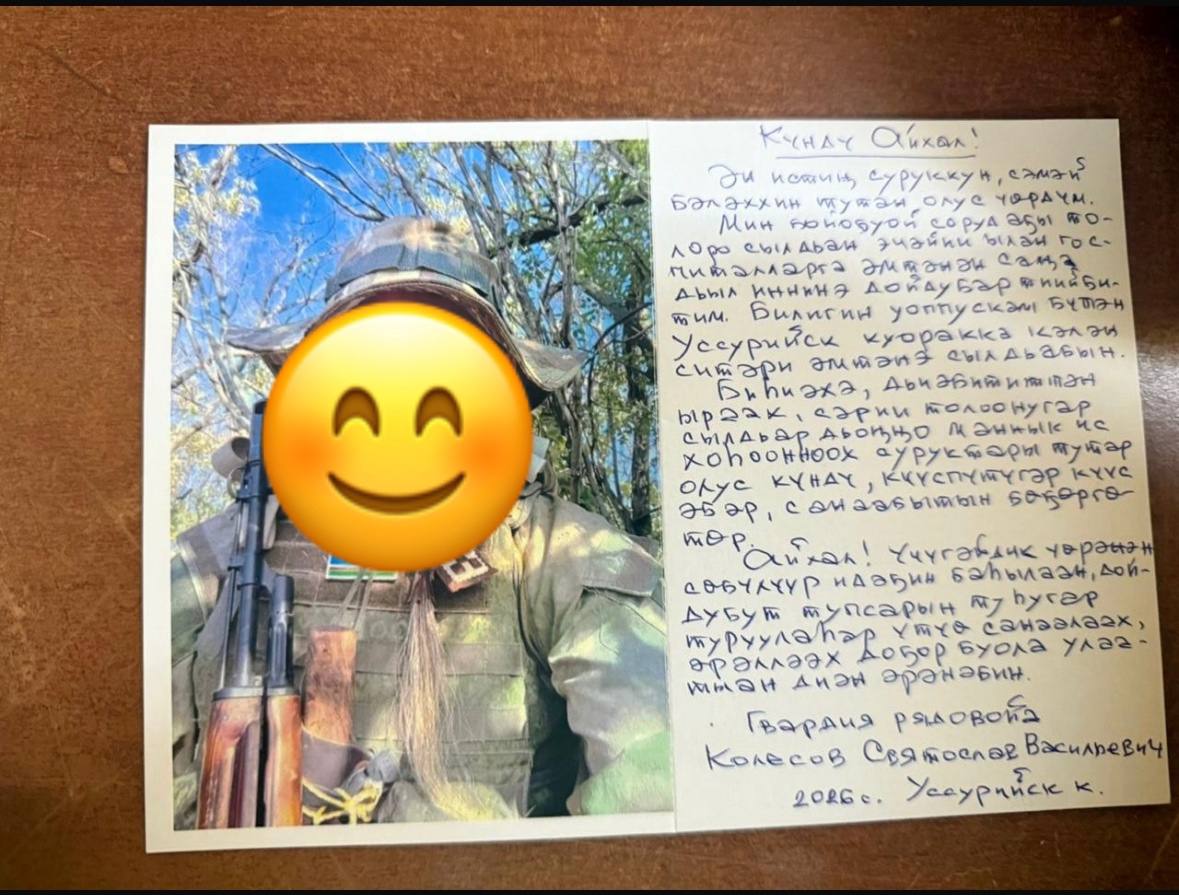 Күндү Айхал!
Эн истиҥ суруккун, сэмэй
бэлэххин тутан олус үөрдүм.
Мин бойобуой сорудаҕы то-
лоро сылдьан эчэйии ылан гос-
питалларга эмтэнэн саҥа
дьыл иннинэ дойдубар тиийби-
тим. Билигин уоппускам бүтэн
Уссурийск куоракка кэлэн
ситэри эмтэнэ сылдьабын.
Биһиэхэ, дьиэбититтэн
ыраах, сэрии толоонугар
сылдьар дьоҥҥо маннык ис
хоһоонноох суруктары тутар
олус күндү, күүспүтүгэр күүс
эбэр, санаабытын бөҕөргө-
төр.
Айхал! Үчүгэйдик үөрэнэн
сөбүлүүр идэҕин баһылаан, дой-
дубут тупсарын туһугар
туруулаһар үтүө санаалаах,
эрэллээх доҕор буола улаа-
ттан диэн эрэнэбин.
Гвардия рядовойа
Колесов Святослав Васильевич
2026 с. Уссурийск к.